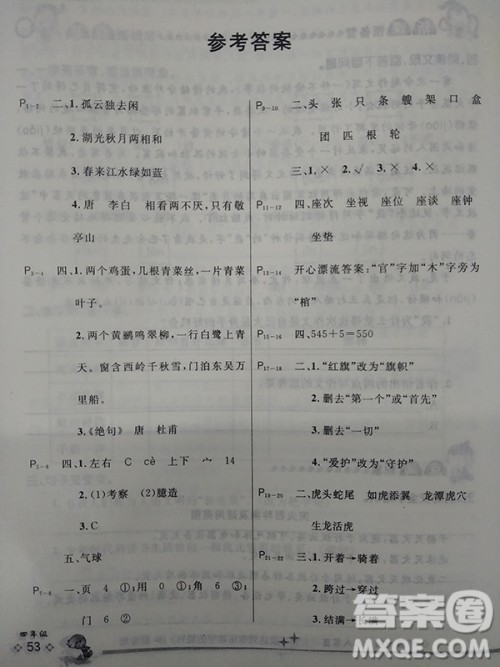 参考答案
P1-2 二、1.孤云独去闲
2.湖光秋月两相和
3.春来江水绿如蓝
4.唐 李白 相看两不厌,只有敬
亭山
P3-4 四、1.两个鸡蛋,几根青菜丝,一片青菜
叶子。
2.两个黄鹂鸣翠柳,一行白鹭上青
天。窗含西岭千秋雪,门泊东吴万
里船。
3.《绝句》 唐 杜甫
P5-6 四、1.左右 C cè 上下 宀 14
2.(1)考察 (2)臆造
3.C
五、气球
P7-8 一、页 4 ①;用 0 ①;角 6 ③;
门 6 ②
P9-10 二、头 张 只 条 艘 架 口 盒
团 匹 根 轮
三、1.× 2.√ 3.× 4.×
P11-12 四、座次 坐视 座位 座谈 座钟
坐垫
开心漂流答案:“官”字加“木”字旁为
“棺”
P15-16 四、545+5=550
P17-18 三、1.“红旗”改为“旗帜”
2.删去“第一个”或“首先”
3.删去“一切”
4.“爱护”改为“守护”
P19-20 二、虎头蛇尾 如虎添翼 龙潭虎穴
生龙活虎
P21-22 三、1.开着→骑着
2.跨过→穿过
3.结满→
四年级
53
答案圈
MXQE.COM